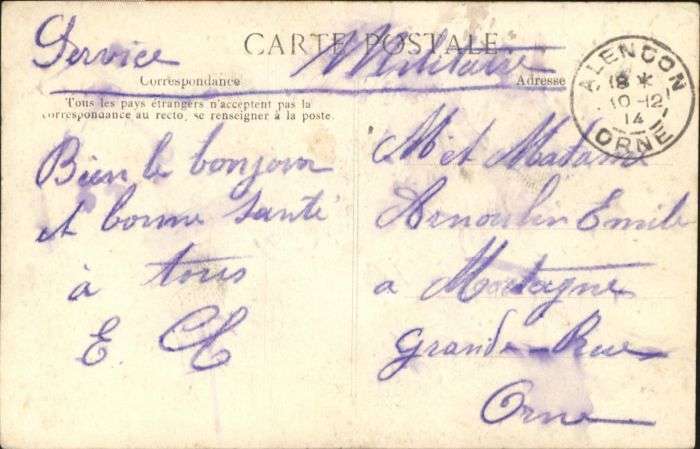 CARTE POSTALE
Service Militaire
Correspondance
Adresse
Tous les pays étrangers n'acceptent pas la
correspondance au recto, se renseigner à la poste.
ALENCON
18 *
10-12
14
ORNE
Bien le bonjour
et bonne santé
à tous
E
M et Madame
Arnoulin Emile
a Mortagne
Grande-Rue
Orne